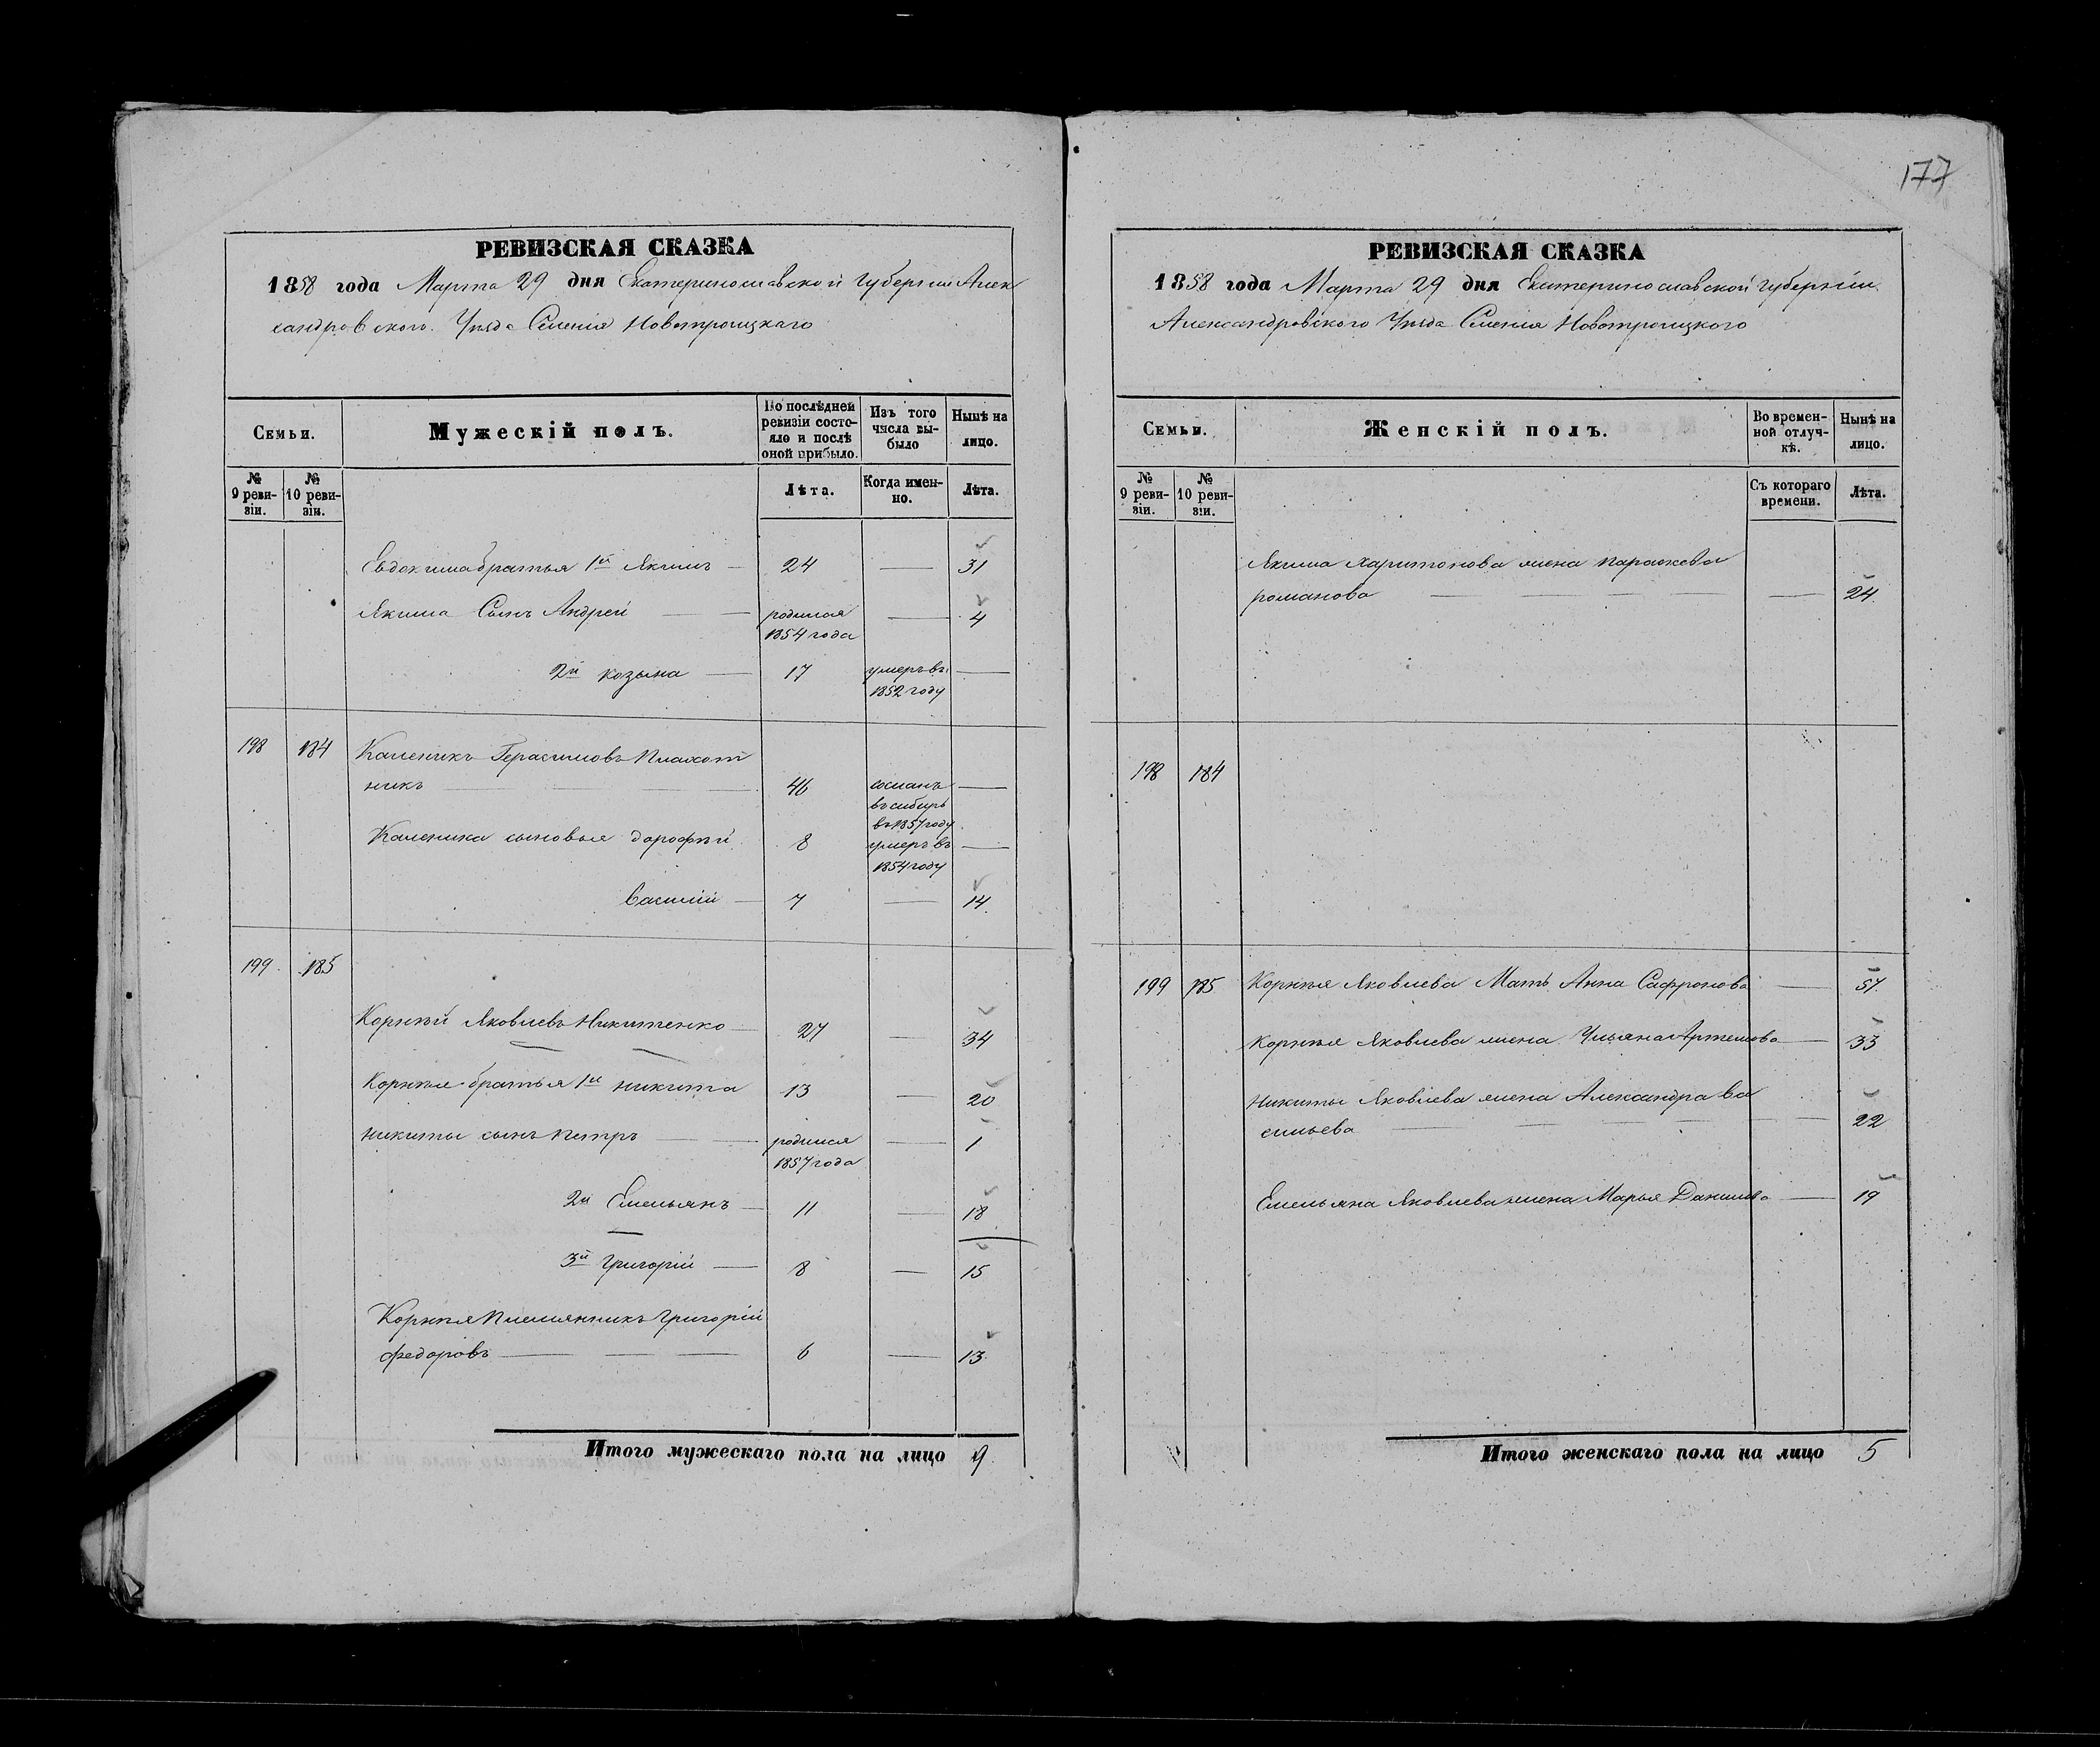 177
РЕВИЗСКАЯ СКАЗКА
1858 года Марта 29 дня Екатеринославской губернии Алек
сандровского Уезда Селения Новотроицкаго
Семьи.
Мужескій полъ.
По последней ревизіи состояло и послѣ оной прибыло.
Изъ того числа выбыло
Нынѣ на лицо.
№ 9 ревизіи.
№ 10 ревизіи.
Лѣта.
Когда именно.
Лѣта.
Евдокима братья 1й Якимъ 24 31
Якима Сынъ Андрей родился 1854 года 4
2й козьма 17 умеръ въ 1852 году
198 184 Каленикъ Герасимовъ Плахот
никъ 46 сосланъ въ сибирь въ 1857 году
Каленика сыновья дорофѣй 8 умеръ въ 1854 году
Василій 7 14
199 185
Корнѣй Яковлевъ Никитенко 27 34
Корнѣя братья 1й никита 13 20
никиты сынъ петръ родился 1857 года 1
2й Емельянъ 11 18
3й григорій 8 15
Корнѣя племянникъ григорій
федоровъ 6 13
Итого мужескаго пола на лицо 9
РЕВИЗСКАЯ СКАЗКА
1858 года Марта 29 дня Екатеринославской губерніи
Александровского Уѣзда Селенія Новотроицкого
Семьи.
Женскій полъ.
Во временной отлучкѣ.
Нынѣ на лицо.
№ 9 ревизіи.
№ 10 ревизіи.
Съ котораго времени.
Лѣта.
Якима Харитонова жена параскева
романова 24
198 184
199 185 Корнѣя Яковлева Мать Анна Сафронова 57
Корнѣя Яковлева жена Ульяна Артемова 33
Никиты Яковлева жена Александра Ва
сильева 22
Емельяна Яковлева жена Марья Данилова 19
Итого женскаго пола на лицо 5